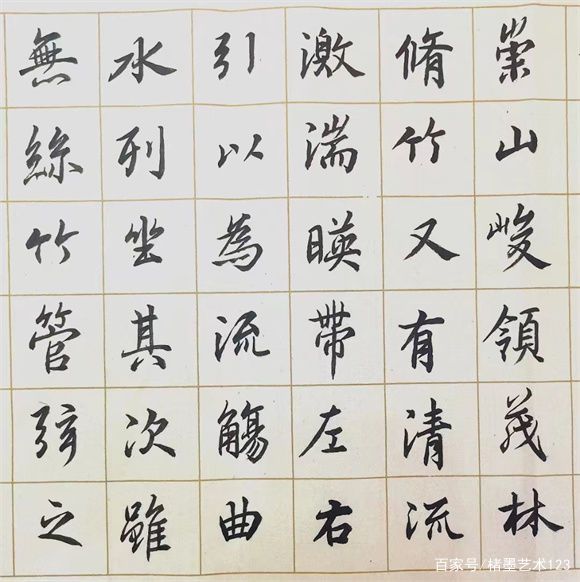 崇山峻領茂林
脩竹又有清流
激湍暎帶左右
引以為流觴曲
水列坐其次雖
無絲竹管弦之
百家号/楮墨艺术123